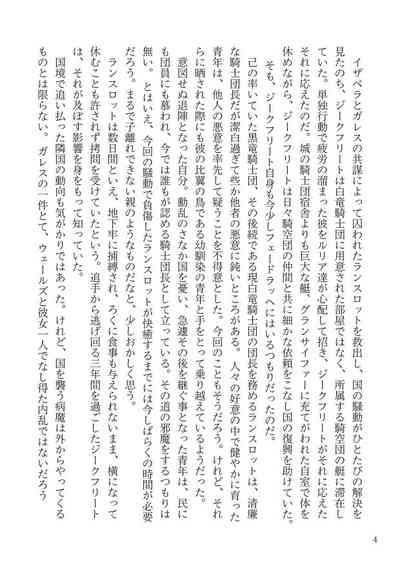 イザベラとガレスの共謀によって囚われたランスロットを救出し、国の騒動がひとたびの解決を
見たのち、ジークフリートは白竜騎士団に用意された部屋ではなく、所属する騎空団の艇に滞在し
ていた。単独行動で疲労の溜まった彼をルリア達が心配して招き、ジークフリートがそれに応えた
それに応えたのだ。城の騎士団宿舎よりも巨大な艇、グランサイファーに充てがわれた自室で体を
休めながら、ジークフリートは日々騎空団の仲間と共に細かな依頼をこなし国の復興を助けていた。
そも、ジークフリート自身も今少しフェードラッへにはいるつもりだったのだ。
己の率いていた黒竜騎士団、その後続である現白竜騎士団の団長を務めるランスロットは、清廉
な騎士団長だが潔白過ぎて些か他者の悪意に鈍いところがある。人々の好意の中で健やかに育った
青年は、他人の悪意を率先して疑うことを不得意とした。今回のこともそうだろう。けれど、それ
らに晒された際にも彼の比翼の鳥である幼馴染の青年と手をとって乗り越えているようだった。
意図せぬ退陣となった自分。動乱のさなか国を憂い、急遽その後を継ぐ事となった青年は、民に
も団員にも慕われ、今では誰もが認める騎士団長として立っている。その道の邪魔をするつもりは
無い。とはいえ、今回の騒動で負傷したランスロットが快癒するまでには今しばらくの時間が必要
だろう。まるで子離れできない親のようなものだなと、少しおかしく思う。
ランスロットは数日間といえ、地下牢に捕縛され、ろくに食事も与えられないまま、横になって
休むことも許されず拷問を受けていたという。追手から逃げ回る三年間を過ごしたジークフリート
は、それが及ぼす影響を身をもって知っていた。
国境で追い払った隣国の動向も気がかりではあった。けれど、国を襲う病魔は外からやってくる
ものとは限らない。ガレスの一件とて、ウェールズと彼女一人でなし得た内乱ではないだろう
4